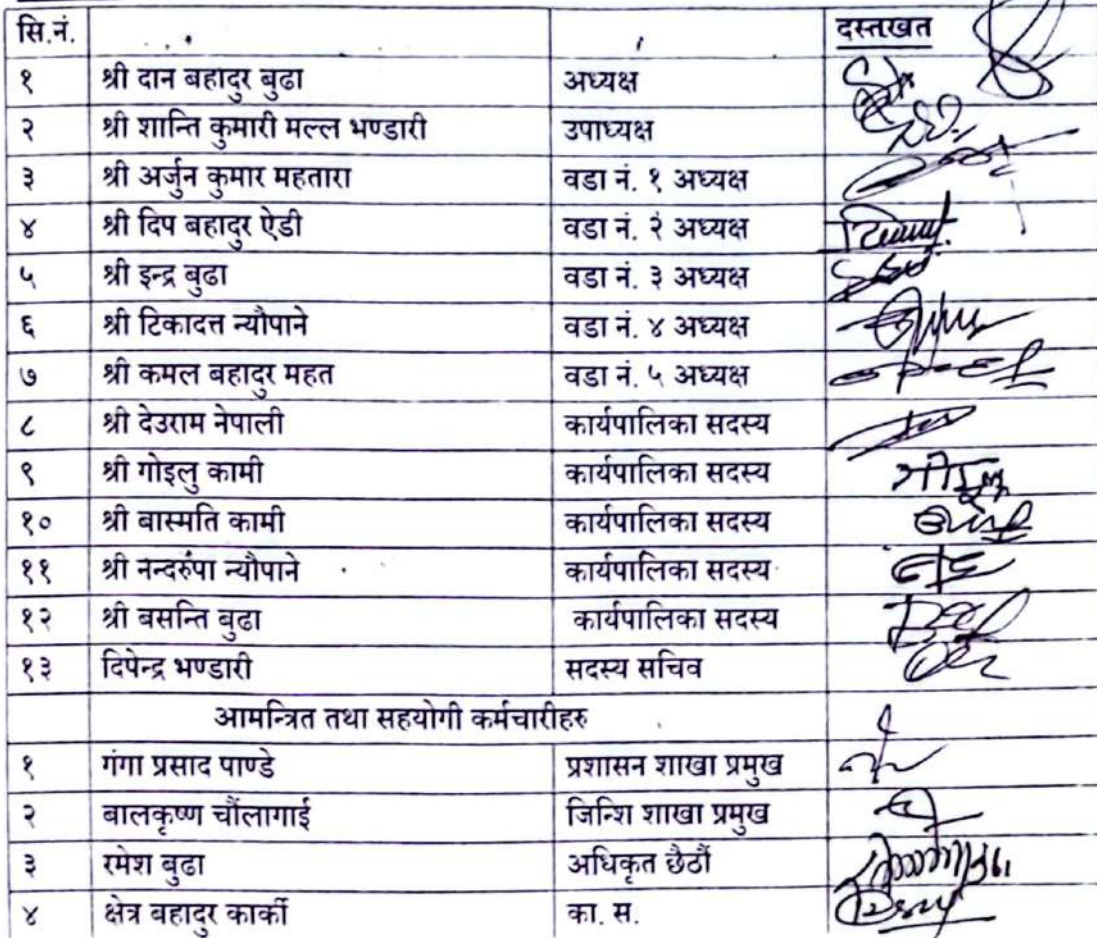 सि.नं. दस्तखत
१ श्री दान बहादुर बुढा अध्यक्ष
२ श्री शान्ति कुमारी मल्ल भण्डारी उपाध्यक्ष
३ श्री अर्जुन कुमार महतारा वडा नं. १ अध्यक्ष
४ श्री दिप बहादुर ऐडी वडा नं. २ अध्यक्ष
५ श्री इन्द्र बुढा वडा नं. ३ अध्यक्ष
६ श्री टिकादत्त न्यौपाने वडा नं. ४ अध्यक्ष
७ श्री कमल बहादुर महत वडा नं. ५ अध्यक्ष
८ श्री देउराम नेपाली कार्यपालिका सदस्य
९ श्री गोइलु कामी कार्यपालिका सदस्य
१० श्री बास्मति कामी कार्यपालिका सदस्य
११ श्री नन्दरुपा न्यौपाने कार्यपालिका सदस्य
१२ श्री बसन्ति बुढा कार्यपालिका सदस्य
१३ दिपेन्द्र भण्डारी सदस्य सचिव
आमन्त्रित तथा सहयोगी कर्मचारीहरु
१ गंगा प्रसाद पाण्डे प्रशासन शाखा प्रमुख
२ बालकृष्ण चौंलागाई जिन्शि शाखा प्रमुख
३ रमेश बुढा अधिकृत छैठौं
४ क्षेत्र बहादुर कार्की का. स.